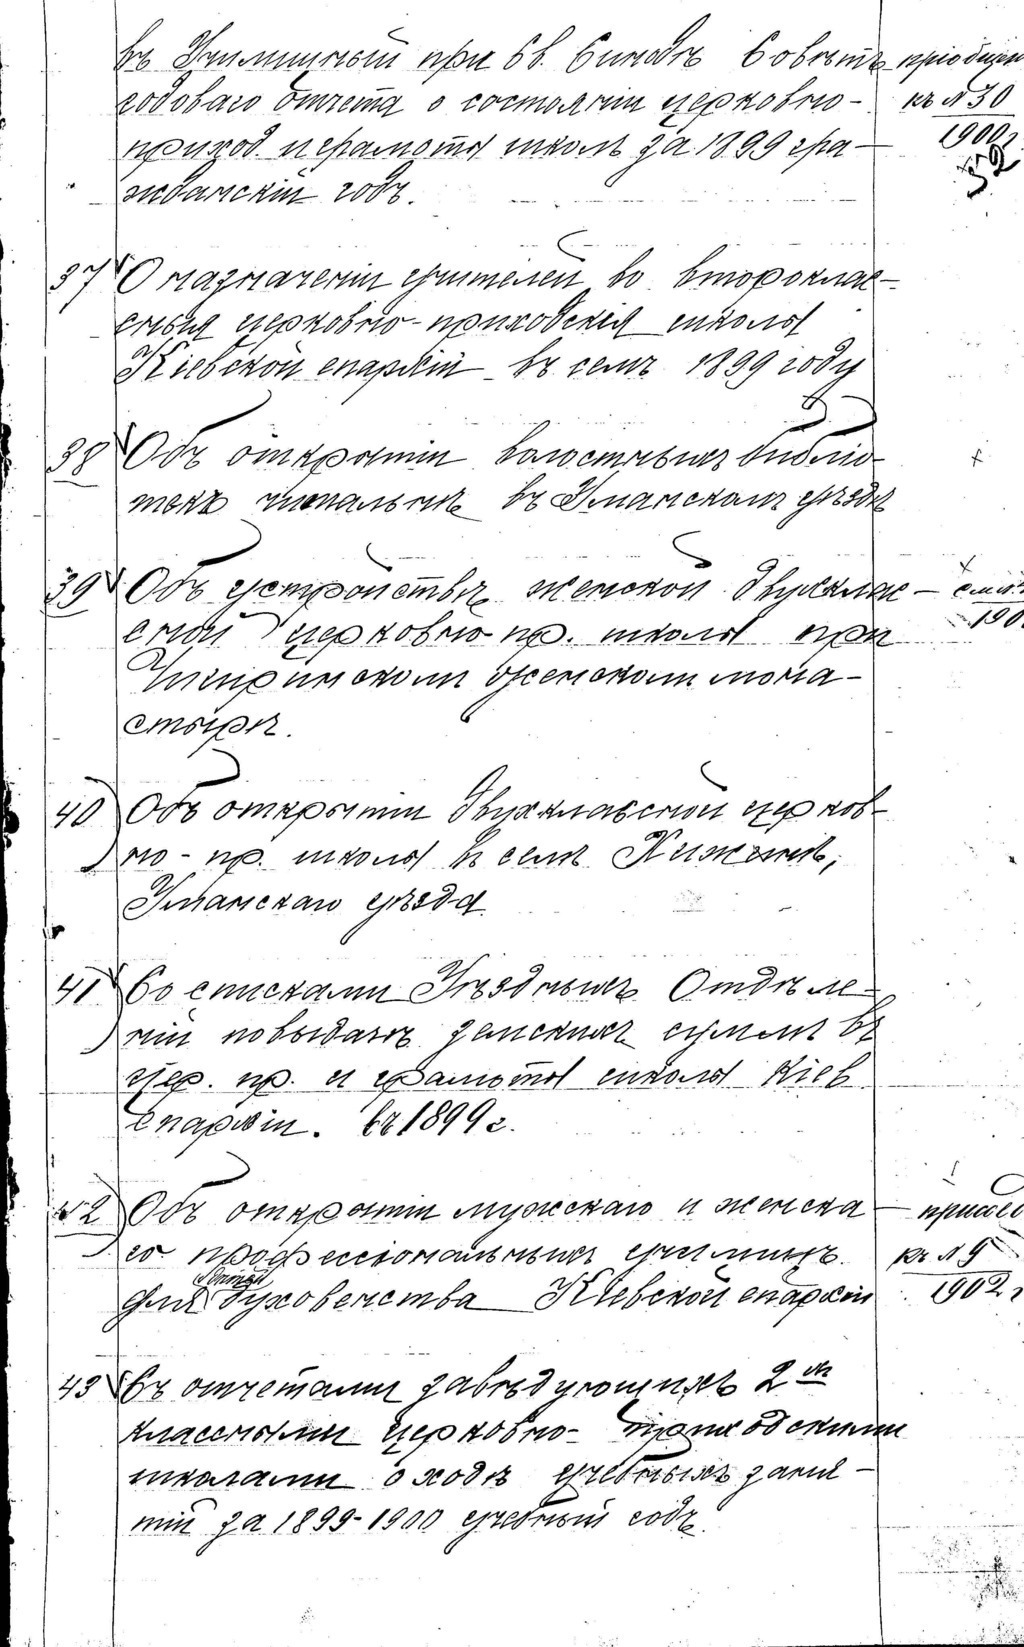 въ Училищный при Св. Синодѣ Совѣтъ
годоваго отчета о состояніи церковно-
приход. и грамоты школъ за 1899 гра-
жданскій годъ.
къ № 30
1900 г.
32
37 О назначеніи учителей во второклас-
сныя церковно-приходскія школы
Кіевской епархіи въ семъ 1899 году
38 Объ открытіи волостныхъ библіо-
текъ читальнь въ Уманскомъ уѣздѣ
39 Объ устройствѣ женской двухклас-
сной церковно-пр. школы при
Чигиринскомъ женскомъ мона-
стырѣ.
40 Объ открытіи двухклассной церков-
но-пр. школы въ селѣ
Уманскаго уѣзда
41 Со списками Уѣздныхъ Отдѣле-
ній о выдачѣ земскихъ суммъ въ
цер. пр. и грамоты школы Кіев.
епархіи. въ 1899 г.
42 Объ открытіи мужскаго и женска-
го профессіональныхъ училищъ
для дѣтей духовенства Кіевской епархіи
къ № 9
1902 г.
43 Съ отчетами завѣдующихъ 2хъ
классными церковно-приходскими
школами о ходѣ учебныхъ заня-
тій за 1899-1900 учебный годъ.